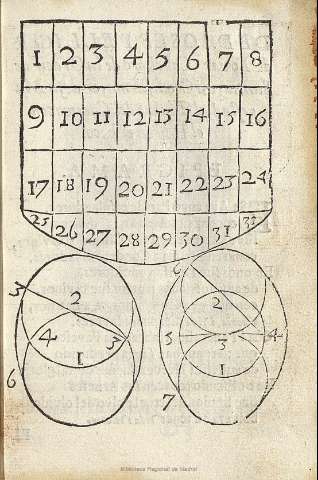 1 2 3 4 5 6 7 8
9 10 11 12 13 14 15 16
17 18 19 20 21 22 23 24
25 26 27 28 29 30 31 32
6
3 2 2
4 3 5 3 4
1 1
6 7
Biblioteca Regional de Madrid